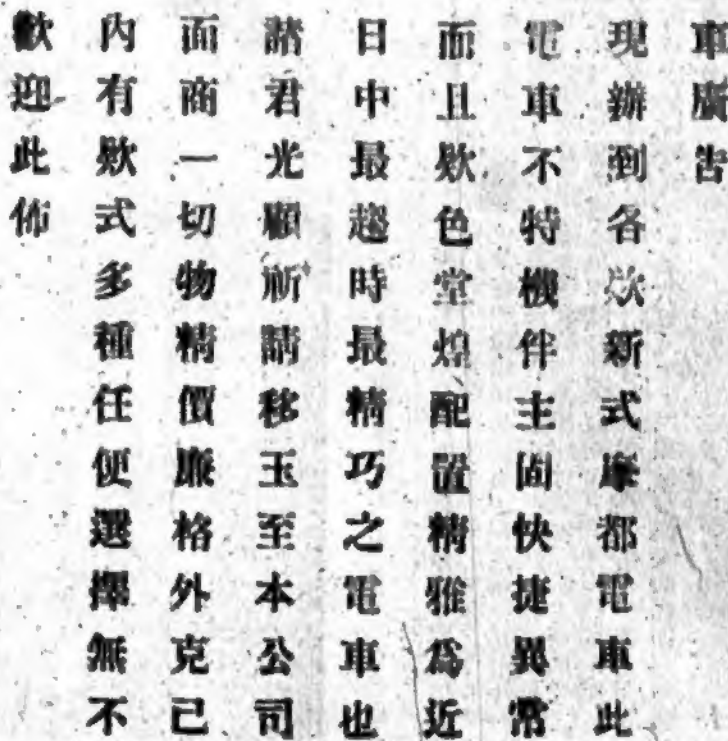 車廣告
現辦到各欵新式摩都電車此
電車不特機件主固快捷異常
而且欵色堂煌配置精雅爲近
日中最趨時最精巧之電車也
諸君光顧祈請移玉至本公司
面商一切物精價廉格外克己
內有欵式多種任便選擇無不
歡迎此佈